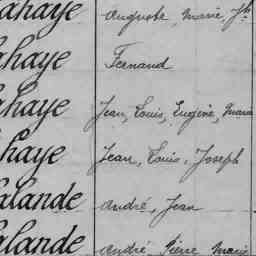 ahaye Auguste, Marie, Jh
ahaye Fernand
ahaye Jean, Louis, Eugène, Marie
ahaye Jean, Louis, Joseph
alande André, Jean
alande André Pierre Marie